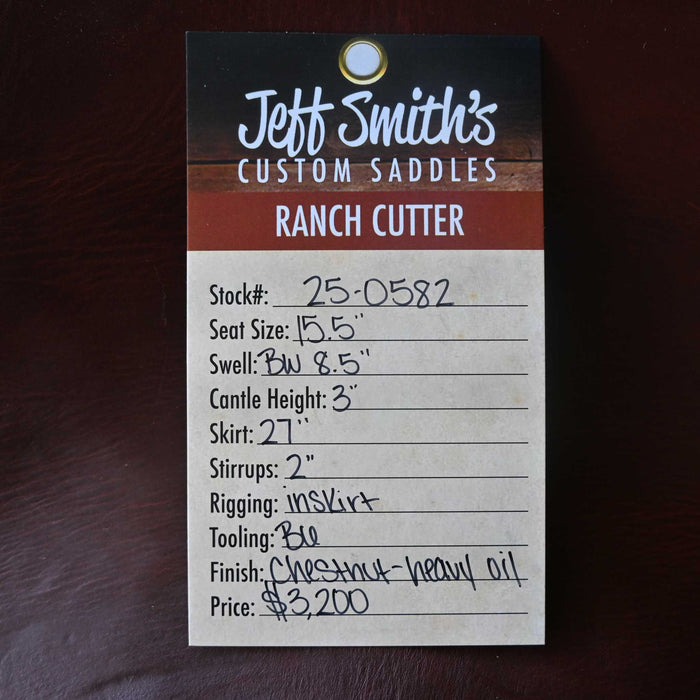 Jeff Smith's
CUSTOM SADDLES
RANCH CUTTER
Stock#: 25-0582
Seat Size: 15.5"
Swell: BW 8.5"
Cantle Height: 3"
Skirt: 27"
Stirrups: 2"
Rigging: inskirt
Tooling:
Finish: Chestnut-heavy oil
Price: $3,200